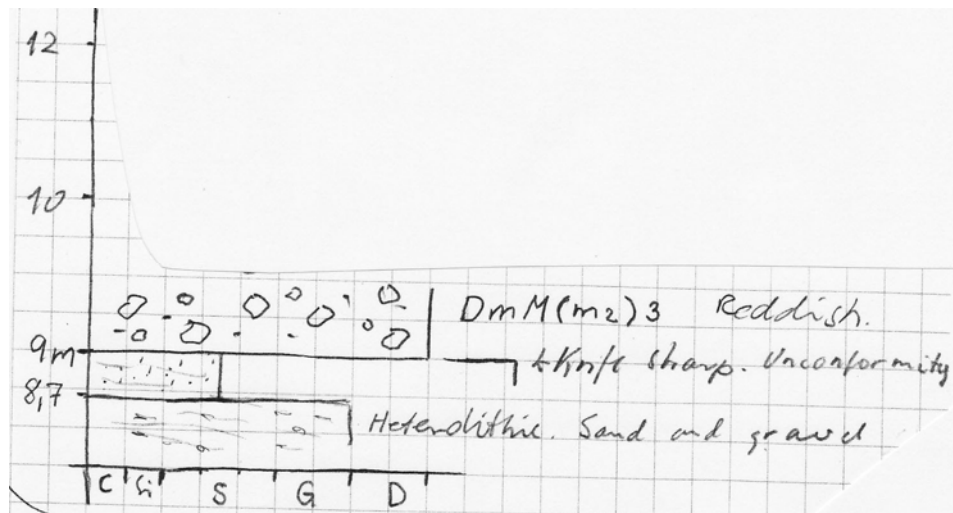 12
10
DmM(m2)3 Reddish.
9m
Knife sharp. Unconformity
8,7
Heterolithic. Sand and gravel
C Si S G D